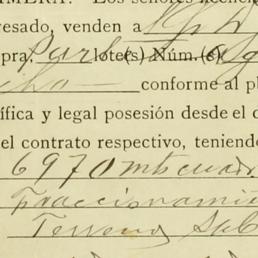 resado, venden a
pra. lote(s) Núm.(s)
conforme al p
ífica y legal posesión desde el d
el contrato respectivo, teniend
6970 mts cuad
Fraccionamie
Terreno Sal